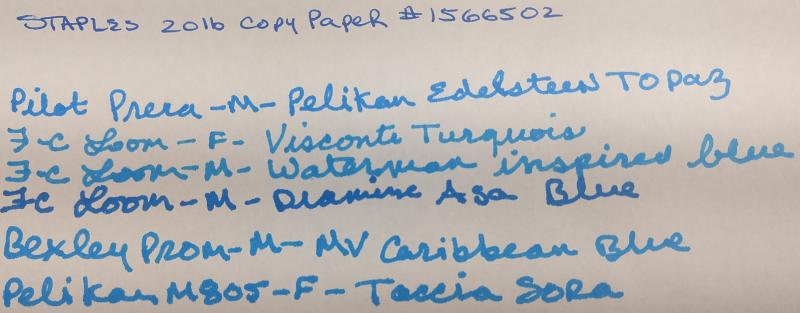 STAPLES 20lb Copy Paper #1566502
Pilot Prera - M - Pelikan Edelsteen Topaz
F-C Loom - F - Visconti Turquois
F-C Loom - M - Waterman inspired blue
FC Loom - M - Diamine Asa Blue
Bexley Prom - M - MV Caribbean Blue
Pelikan M805 - F - Taccia Sora